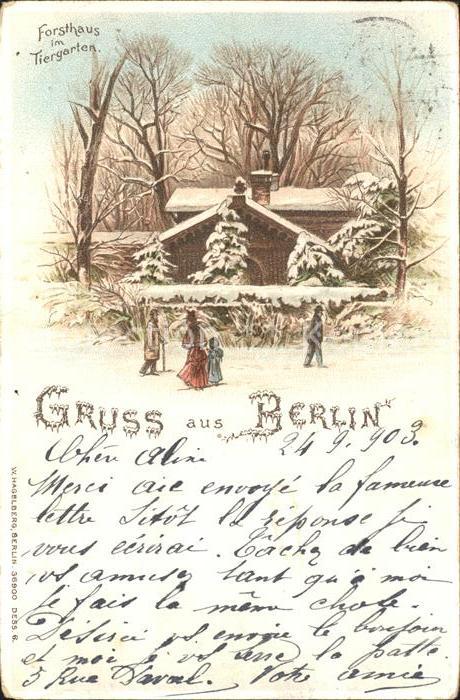 Forsthaus
im
Tiergarten.
GRUSS AUS BERLIN
24 9. 903.
Chère Aline
Merci aie envoyé la fameuse
lettre Sitôt la réponse je
vous écrirai. Tâchez de bien
vs amuser tant qu'à moi
je fais la même chose.
Désirée vs envoie le bonjour
et moi je vs serre la patte.
5 Rue Votre amie
W. HAGELBERG, BERLIN. 36900 DESS. 6.